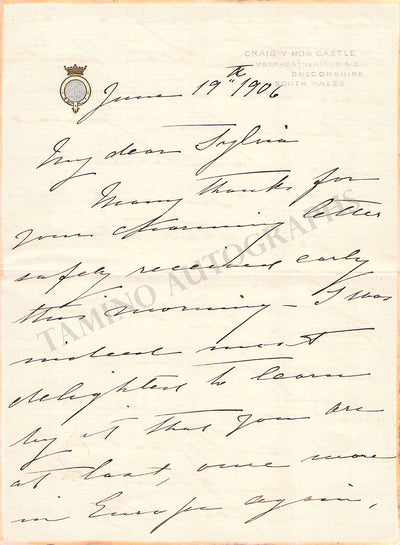 CRAIG-Y-NOS CASTLE
YSTRADGYNLAIS, R.S.O.
BRECONSHIRE
SOUTH WALES.
June 19th 1906
My dear Sylvia
Many thanks for
your charming letter
safely received early
this morning – I was
indeed most
delighted to learn
by it that you are
at last, once more
in Europe again,
TAMINO AUTOGRAPHS